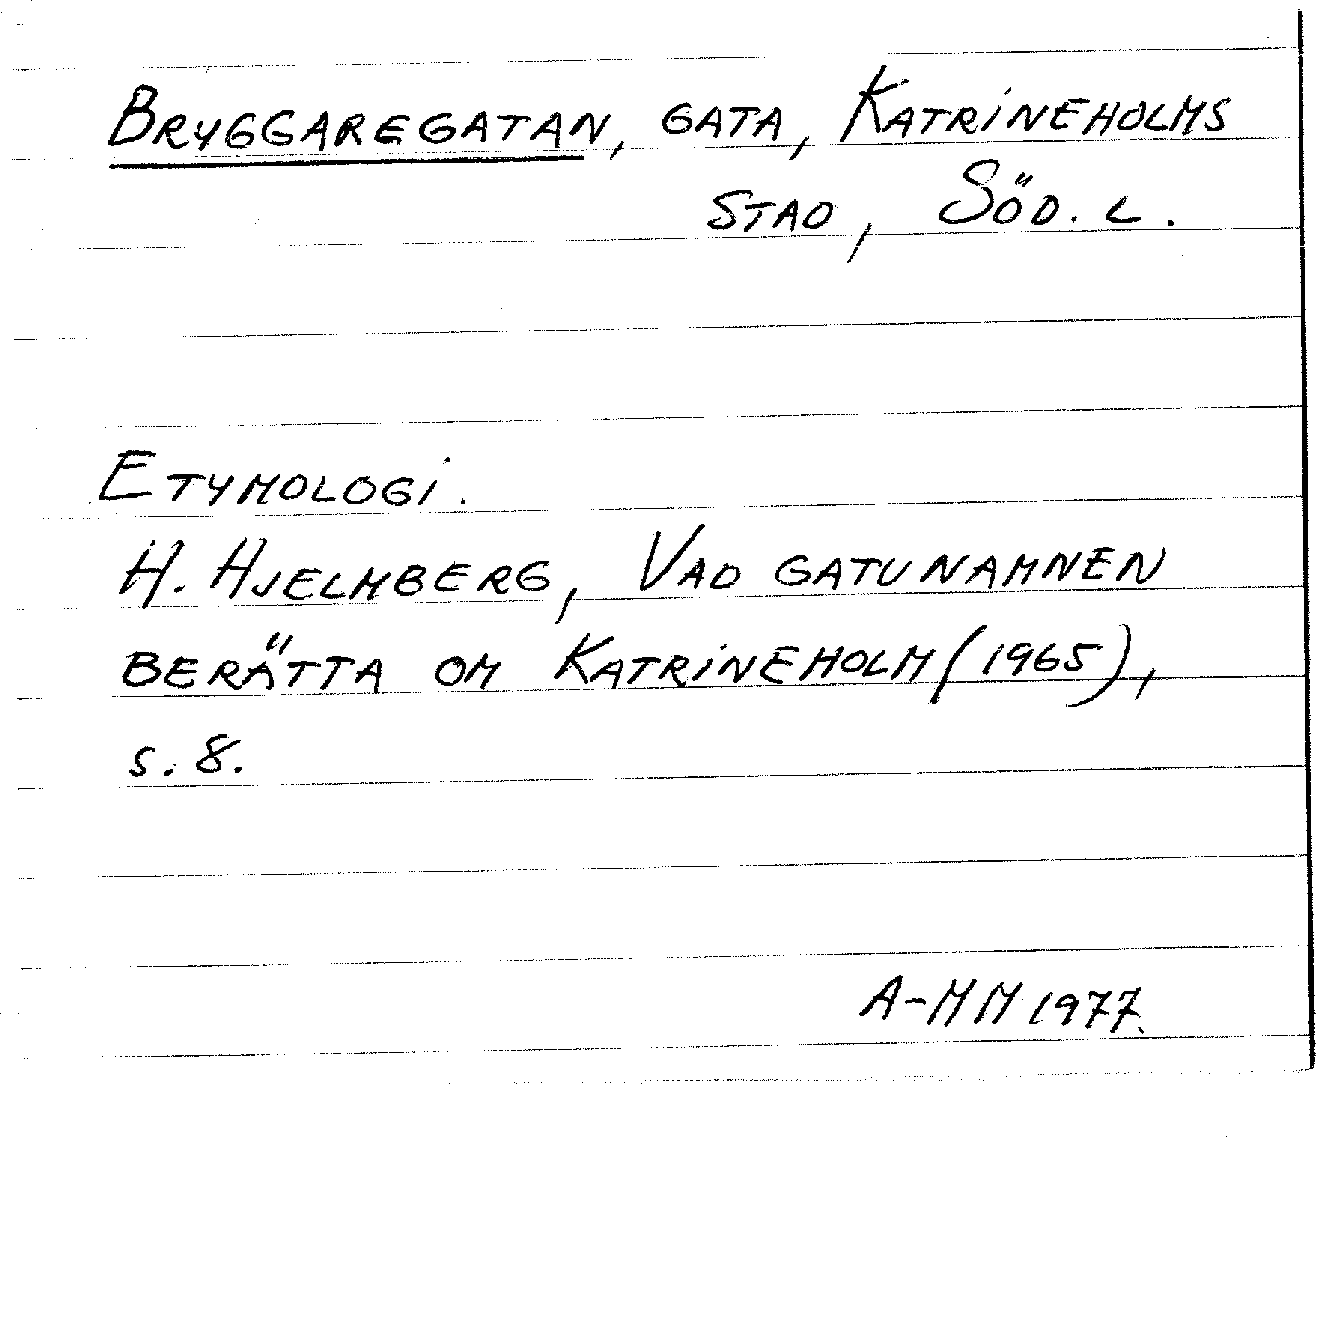 Bryggaregatan, gata, Katrineholms
stad, Söd. l.
Etymologi.
H. Hjelmberg, Vad gatunamnen
berätta om Katrineholm (1965),
s. 8.
A-MM 1977.